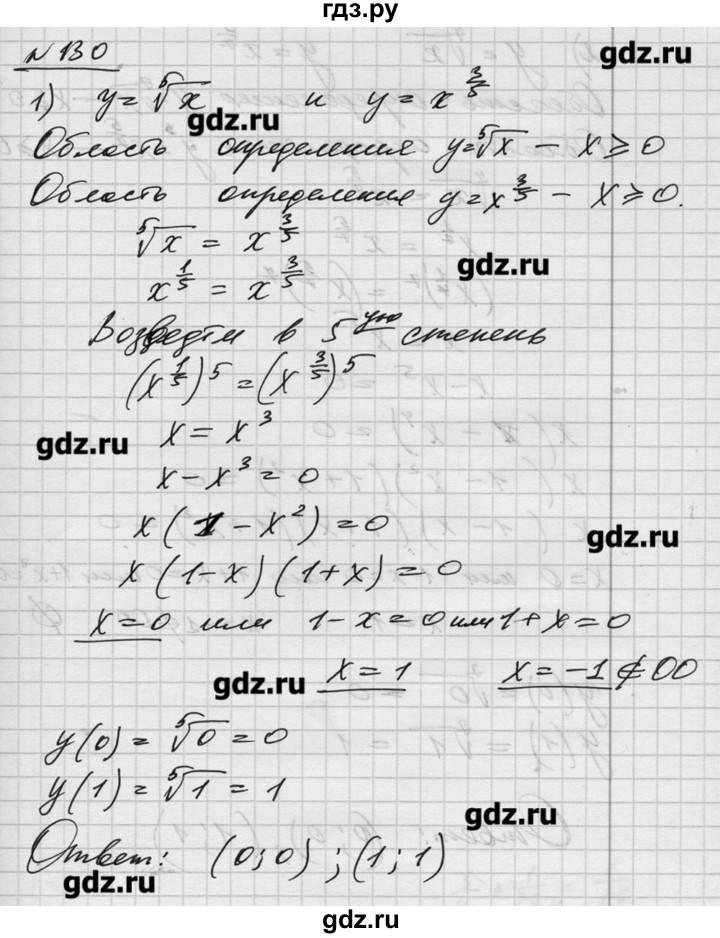 гдз.ру
№ 130
gdz.ru
1) y = ⁵√x и y = x^(3/5)
gdz.ru
Область определения y = ⁵√x – x ≥ 0
Область определения y = x^(3/5) – x ≥ 0.
⁵√x = x^(3/5)
gdz.ru
x^(1/5) = x^(3/5)
Возведём в 5ую степень
(x^(1/5))^5 = (x^(3/5))^5
gdz.ru
x = x³
x – x³ = 0
x (1 – x²) = 0
gdz.ru
x (1 – x) (1 + x) = 0
x = 0 или 1 – x = 0 или 1 + x = 0
gdz.ru
x = 1 x = –1 ∉ ОО
y(0) = ⁵√0 = 0
y(1) = ⁵√1 = 1
gdz.ru
Ответ: (0; 0) ; (1; 1)
gdz.ru
gdz.ru